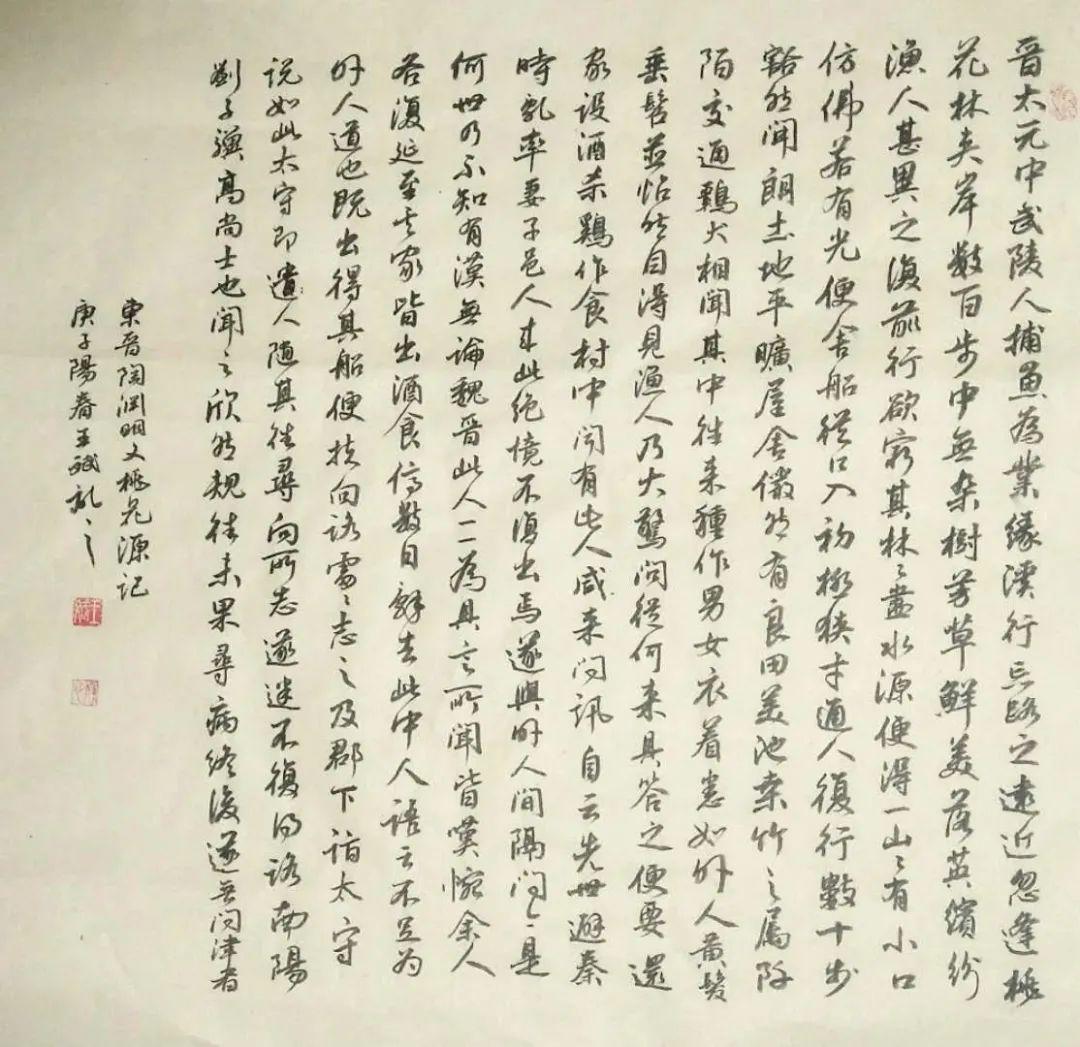 晋太元中武陵人捕鱼為業緣溪行忘路之遠近忽逢桃
花林夹岸數百步中無杂樹芳草鮮美落英缤纷
漁人甚異之復前行欲窮其林〻盡水源便得一山〻有小口
仿佛若有光便舍船從口入初極狭才通人復行數十步
豁然闻朗土地平曠屋舍儼然有良田美池桑竹之属阡
陌交通鷄犬相聞其中往来種作男女衣着悉如外人黄髮
垂髫並怡然自得見漁人乃大驚问從何来具答之便要還
家设酒杀鷄作食村中闻有此人咸来问讯自云先世避秦
時亂率妻子邑人来此绝境不復出焉遂與外人间隔问今是
何世乃不知有漢無論魏晋此人一一為具言所闻皆嘆惋余人
各復延至其家皆出酒食停數日辞去此中人語云不足为
外人道也既出得其船便扶向路處〻志之及郡下詣太守
说如此太守即遣人随其往尋向所志遂迷不復得路南陽
劉子驥高尚士也闻之欣然规往未果尋病终後遂無问津者
東晋陶渊明文桃花源记
庚子陽春王